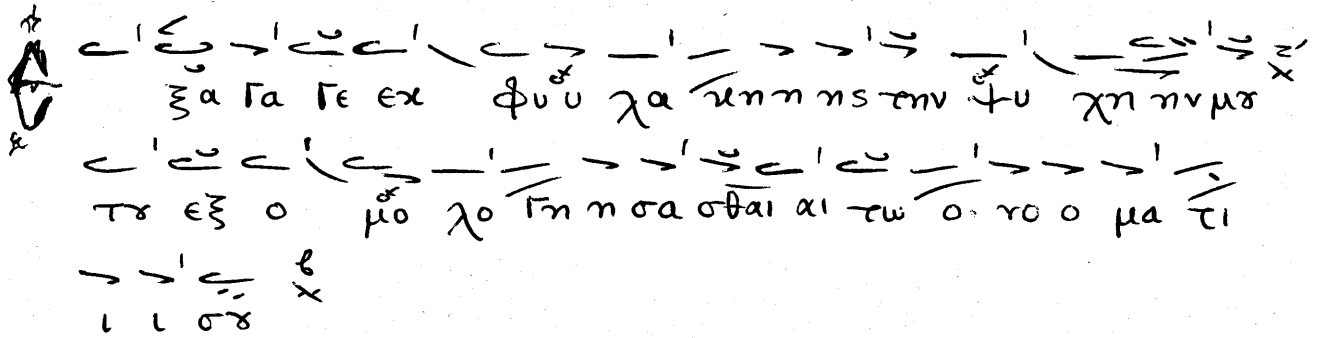 Ἐξα γα γε εκ φυ υ λα κη η ης την ψυ χη ην μȣ
τȣ εξ ο μο λο γη η σα σθαι αι τω ο νο ο μα τι
ι ι σȣ